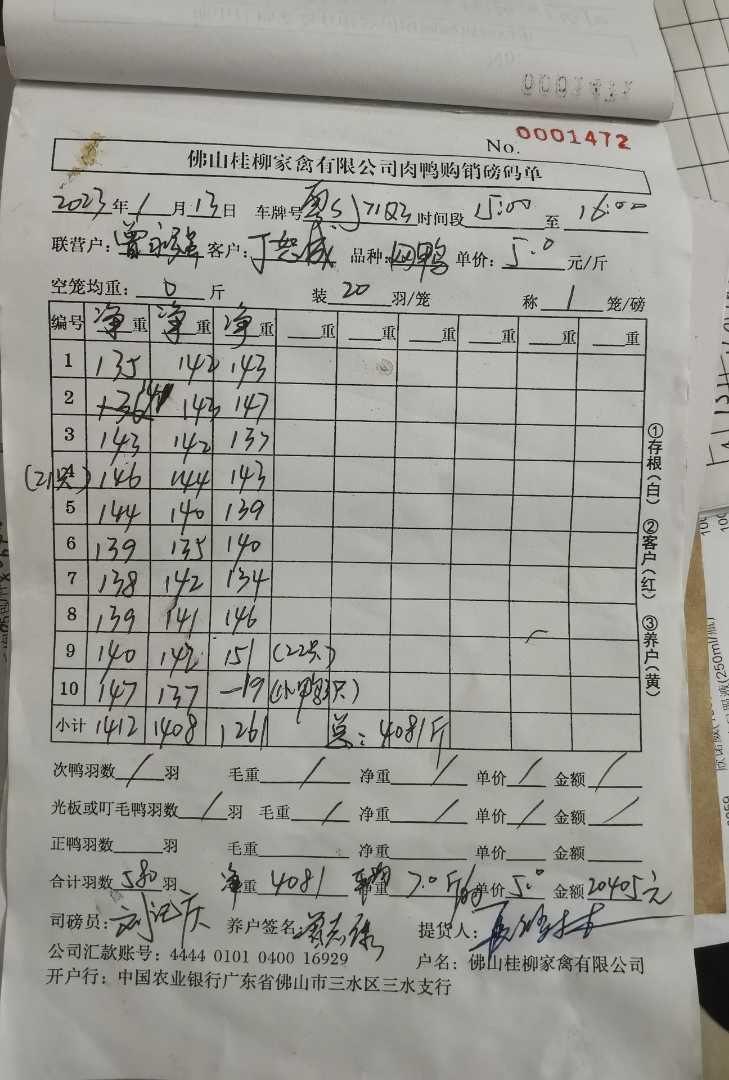 0001472
No. 0001472
佛山桂柳家禽有限公司肉鸭购销磅码单
2023年1月13日 车牌号 时间段15:00至16:00
联营户: 客户:丁 品种: 鸭 单价:5.0元/斤
空笼均重:0斤 装20羽/笼 称1笼/磅
编号 净重 净重 净重 重 重 重 重 重 重
1 135 142 143
2 136 141 143 147
3 143 142 137
(21只) 4 146 144 143
5 144 140 139
6 139 135 140
7 138 142 134
8 139 141 146
9 140 142 151 (22只)
10 147 137 -19 (小鸭3只)
小计 1412 1408 1261 总:4081斤
①存根(白) ②客户(红) ③养户(黄)
次鸭羽数/羽 毛重/ 净重/ 单价/ 金额/
光板或叮毛鸭羽数/羽 毛重/ 净重/ 单价/ 金额/
正鸭羽数 羽 毛重 净重 单价 金额
合计羽数580羽 净重4081 平均重7.0斤/ 单价5.0 金额20405元
司磅员:刘 庆 养户签名: 提货人:
公司汇款账号:4444 0101 0400 16929 户名:佛山桂柳家禽有限公司
开户行:中国农业银行广东省佛山市三水区三水支行
(250ml/瓶)